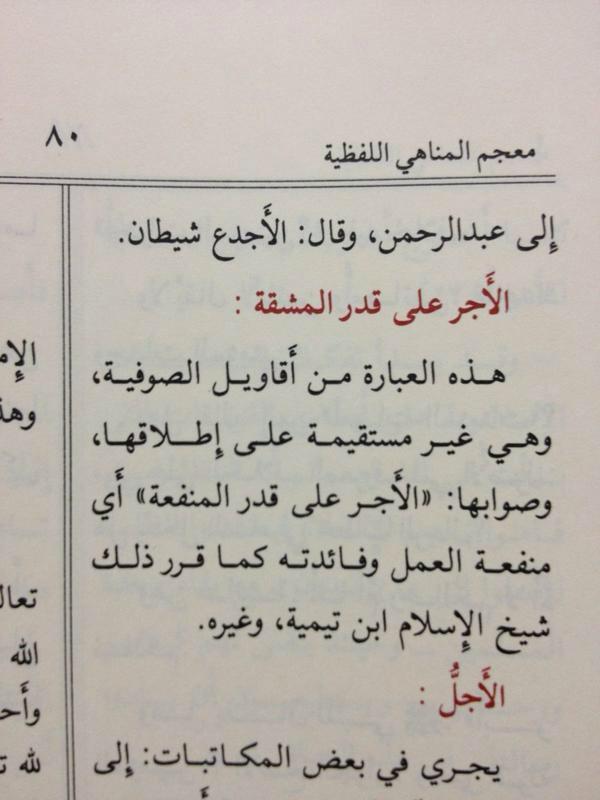 معجم المناهي اللفظية
٨٠
إِلى عبدالرحمن، وقال: الأَجدع شيطان.
الأَجر على قدر المشقة :
هذه العبارة من أَقاويل الصوفية،
وهي غير مستقيمة على إِطلاقها،
وصوابها: «الأَجر على قدر المنفعة» أَي
منفعة العمل وفائدته كما قرر ذلك
شيخ الإِسلام ابن تيمية، وغيره.
الأَجلُّ :
يجري في بعض المكاتبات: إِلى
وهذ
تعال
الله
وأَح
لله ت